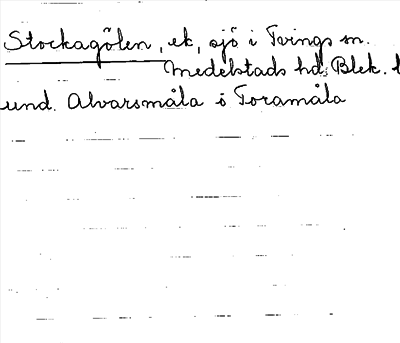 Stockagölen, ek, sjö i Tvings sn.
Medelstads hd, Blek. l
und. Alvarsmåla o Toramåla